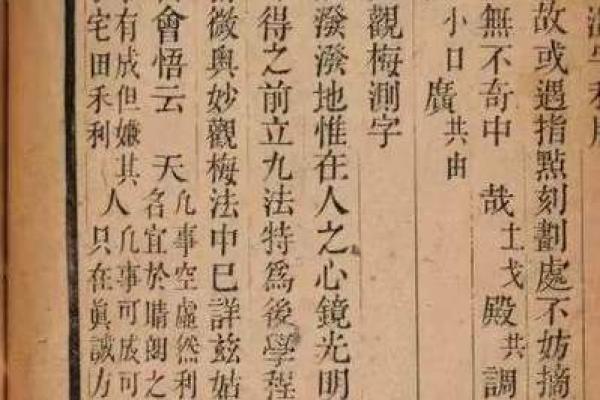 故或遇指點刻劃處不妨摘
無不奇中 哉土戈 殿共 調
小口 廣共由
觀梅測字
潑潑地惟在人之心鏡光明
得之前立九法特爲後學程
微奧妙觀梅法中已詳兹姑
會悟云 天 凡事空虛然利
名宜於晴朗之
有成但嫌其
宅田禾利
人 凡事可成可
只在眞誠力